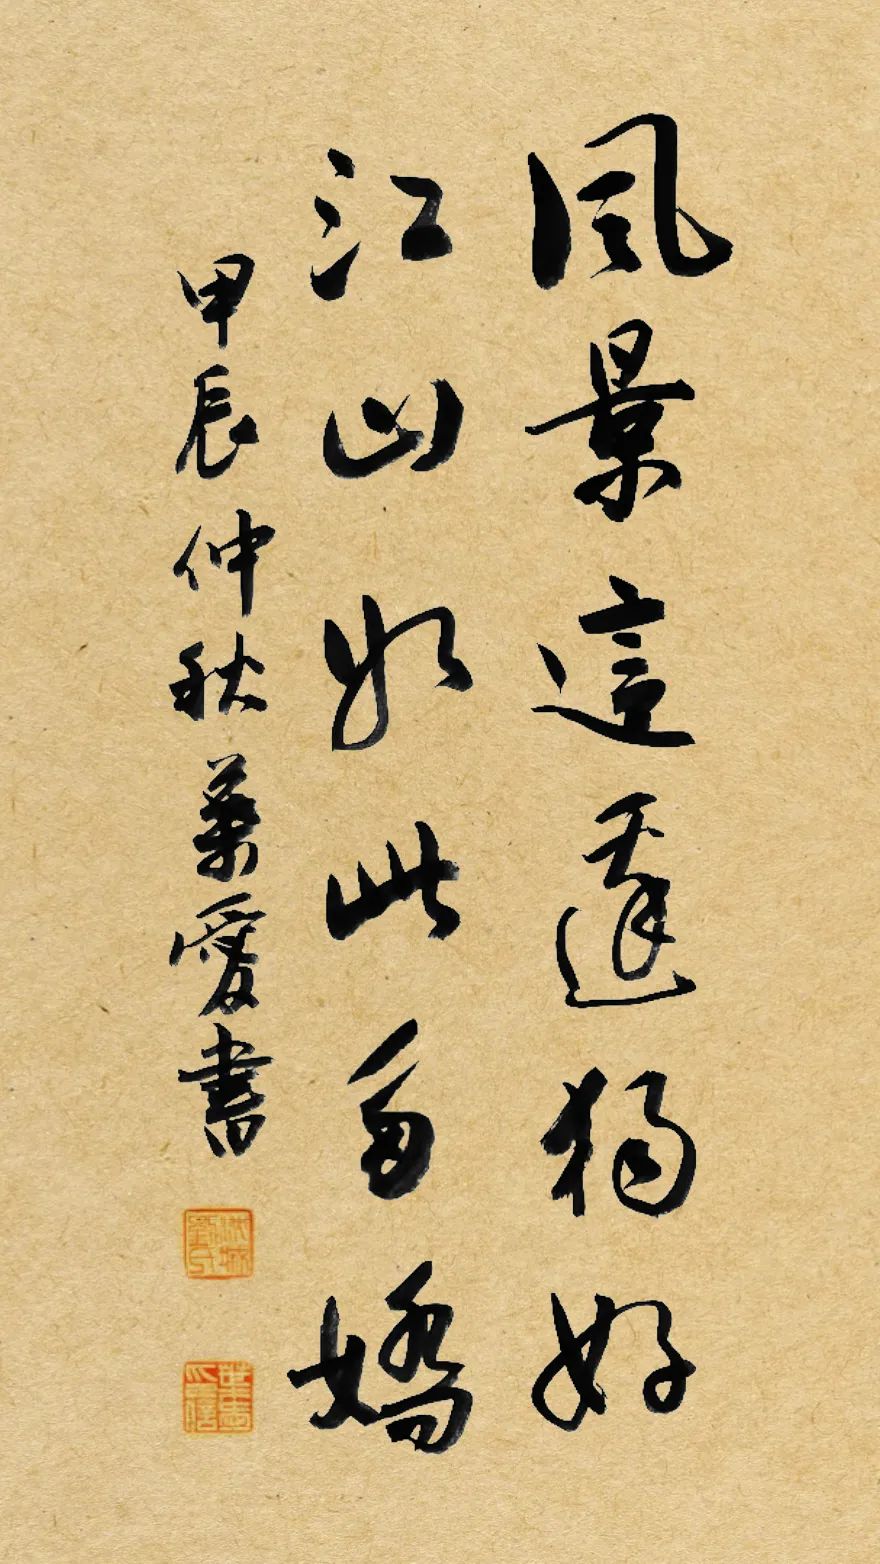 風景這邊獨好
江山如此多嬌
甲辰仲秋葉愛書